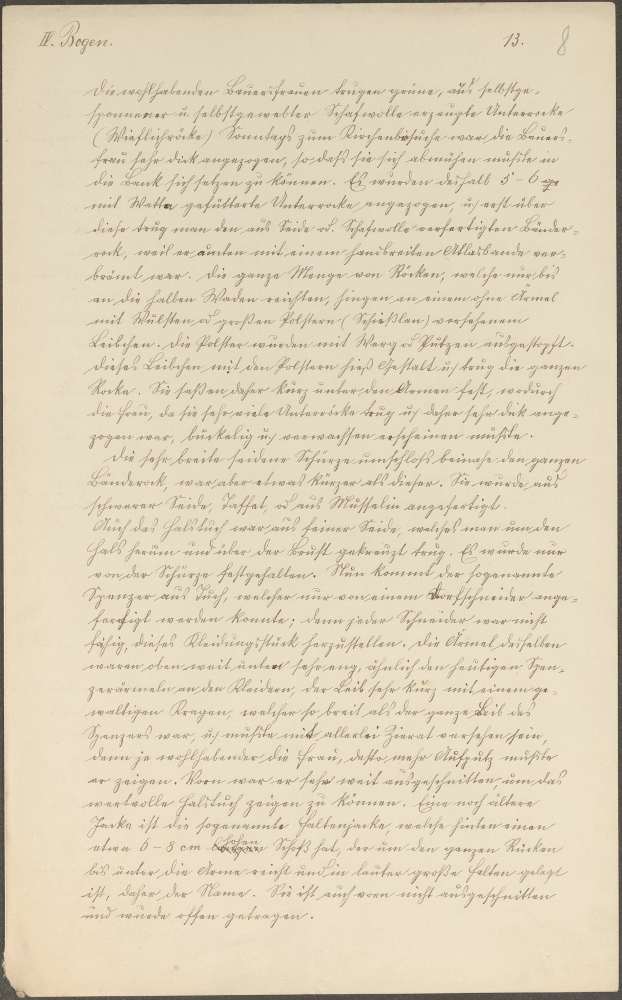 IV. Bogen. 13. 8
Die wohlhabenden Bauersfrauen trugen grüne, aus selbstge-
sponnener u. selbstgewebter Schafwolle erzeugte Unterröcke
(Wieflichröcke) Sonntags zum Kirchenbesuche war die Bauers-
frau sehr dick angezogen, so daß sie sich abmühen mußte in
die Bank sich setzen zu können. Es wurden deshalb 5 - 6
mit Watta gefütterte Unterröcke angezogen, u. erst über
diese trug man den aus Seide od. Schafwolle verfertigten Bänder-
rock, weil er unten mit einem handbreiten Atlasbande ver-
brämt war. Die ganze Menge von Röcken, welche nur bis
an die halben Waden reichten, hingen an einem ohne Ärmel
mit Wülsten od. großen Polstern (Schießlan) versehenem
Leibchen. Die Polster wurden mit Werg od. Putzen ausgestopft.
Dieses Leibchen mit den Polstern hieß Gestalt u. trug die ganzen
Röcke. Sie saßen daher kurz unter den Armen fest, wodurch
die Frau, da sie sehr viele Unterröcke trug u. daher sehr dick ange-
zogen war, buckelig u. verwachsen erscheinen mußte.
Die sehr breite seidene Schürze umschloß beinahe den ganzen
Bänderock, war aber etwas kürzer als dieser. Sie wurde aus
schwerer Seide, Taffet, od. aus Musselin angefertigt.
Auch das Halstuch war aus feiner Seide, welches man um den
Hals herum und über der Brust gekreuzt trug. Es wurde nur
von der Schürze festgehalten. Nun kommt der sogenannte
Spenzer aus Tuch, welcher nur von einem Dorfschneider ange-
fertigt werden konnte; denn jeder Schneider war nicht
fähig, dieses Kleidungsstück herzustellen. Die Ärmel desselben
waren oben weit, unten sehr eng, ähnlich den heutigen Spen-
zerärmeln an den Kleidern, der Leib sehr kurz mit einem ge-
waltigen Kragen, welcher so breit als der ganze Leib des
Spenzers war, u. mußte mit allerlei Zierat versehen sein,
denn je wohlhabender die Frau, desto mehr Aufputz mußte
er zeigen. Vorn war er sehr weit ausgeschnitten, um das
wertvolle Halstuch zeigen zu können. Eine noch ältere
Jacke ist die sogenannte Faltenjacke, welche hinten einen
etwa 6 - 8 cm hohen Schoß hat, der um den ganzen Rücken
bis unter die Arme reicht und in lauter große Falten gelegt
ist, daher der Name. Sie ist auch vorn nicht ausgeschnitten
und wurde offen getragen.